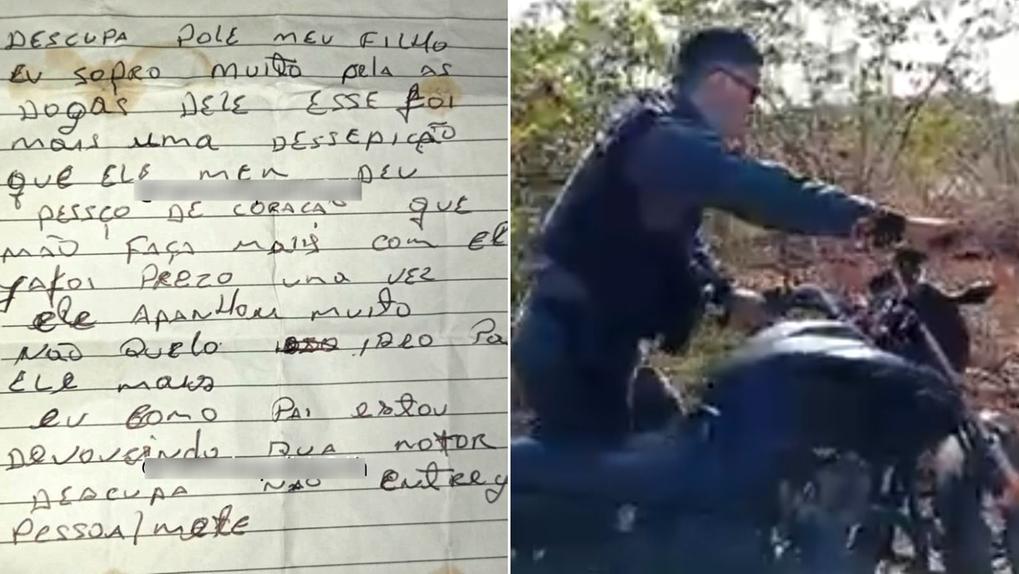 DESCUPA POLE MEU FILHO
EU SOPRO MUITO pela AS
DOGAS DELE ESSE foi
mais uma DESSEPICÃO
que ELE MEU DEU
PESSÇO DE CORAÇAO que
MÃO FAÇA MAIS COM EL
JAFOI PREZO una VEZ
ele APANHOU muito
NÃO QUELO ISSO Pa
ELE mais
eu Como PAI estou
DEVOUÇindo SUA MOTOR
DEACUPA NAO entreg
Pessoalmete